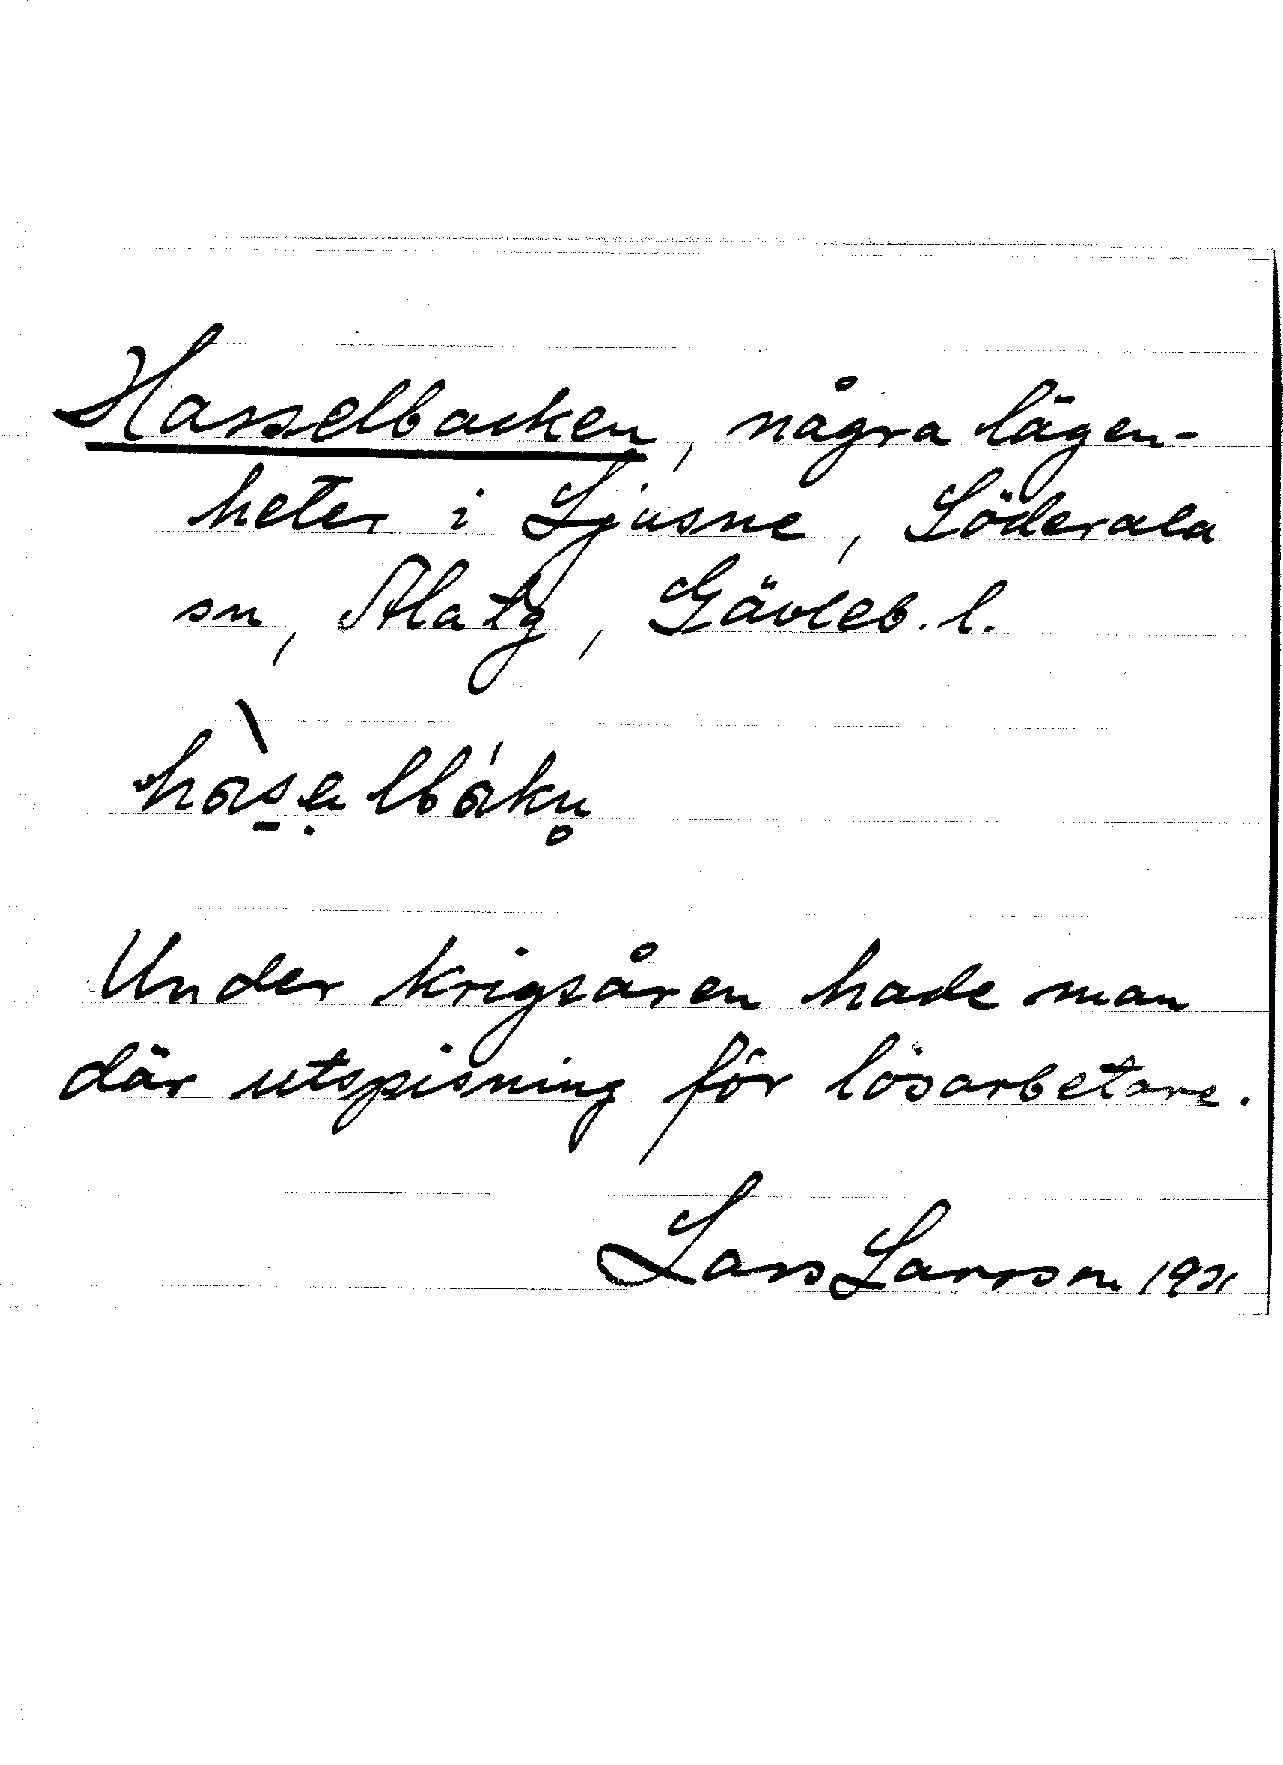 Hasselbacken, några lägen-
heter i Ljusne, Söderala
sn, Ala tg, Gävleb. l.
hàs̠ẹlbákn̥
Under krigsåren hade man
där utspisning för lösarbetare.
Lars Larsson